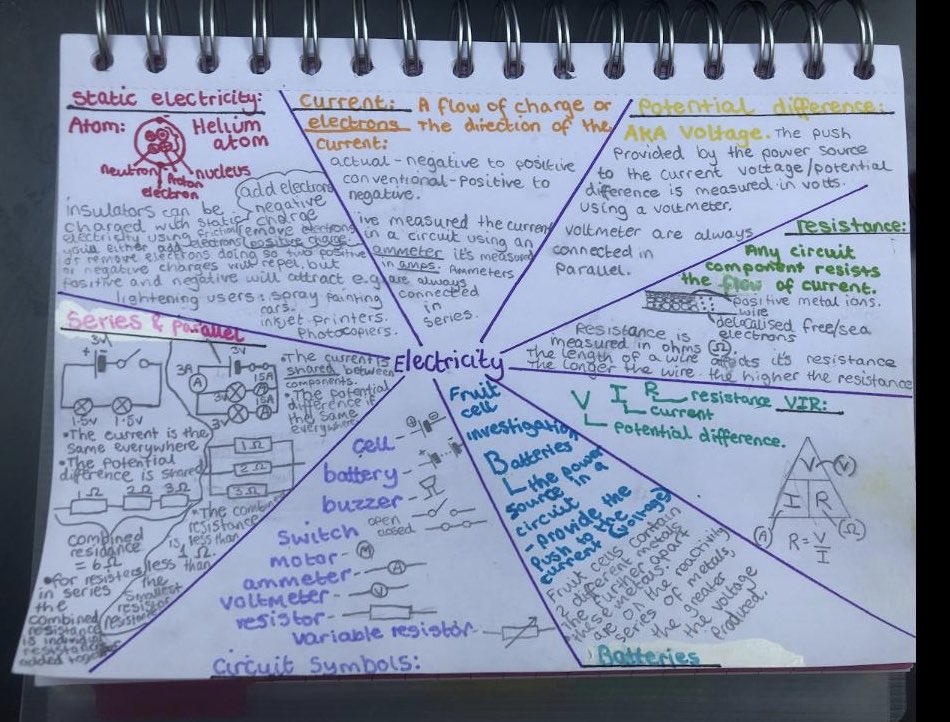 Static electricity:
Atom:
Helium
atom
neutron
Proton
nucleus
electron
add electrons
negative
charge
remove electrons
positive charge
insulators can be
charged with static
electricity using friction
will either add electrons
or remove electrons doing so two positive
or negative charges will repel, but
positive and negative will attract e.g.
lightening users: spray painting
cars.
inkjet printers.
Photocopiers.
Current: A flow of charge or
electrons The direction of the
current:
actual-negative to positive
conventional-positive to
negative.
ive measured the current
in a circuit using an
ammeter it's measured
in amps. Ammeters
are always
connected
in
series.
Potential difference:
AKA Voltage. The push
provided by the power source
to the current voltage/potential
difference is measured in volts.
using a voltmeter.
voltmeter are always
connected in
Parallel.
resistance:
Any circuit
component resists
the flow of current.
positive metal ions.
wire
delocalised free/sea
electrons
Resistance is
measured in ohms (Ω).
The length of a wire affects it's resistance
The longer the wire the higher the resistance
Electricity
Series & parallel
3V
1.5V 1.5V
•The current is the
same everywhere
•The potential
difference is shared
1Ω 2Ω 3Ω
combined
resistance
= 6Ω
•for resisters
in series
the
combined
resistance
is individual
resistances
added together
3V
3A
A
1.5A
3V
A
3V
•The current is
shared between
components.
•The potential
difference is
the same
everywhere
1Ω
2Ω
3Ω
•The combined
resistance
is less than
1Ω.
less than
the
smallest
resistor
Cell
battery
buzzer
Switch
open
closed
motor- M
ammeter- A
voltmeter- V
resistor-
variable resistor-
Circuit Symbols:
Fruit
cell
investigation
Batteries
the power
source in a
circuit
- Provide the
Push to the
current (voltage)
Fruit cells contain
2 different metals
The further apart
these metals
are on the reactivity
series of metals,
the greater
the voltage
produced.
Batteries
VIR:
V I R
resistance
current
potential difference.
V V
I R
A Ω
R = V
I